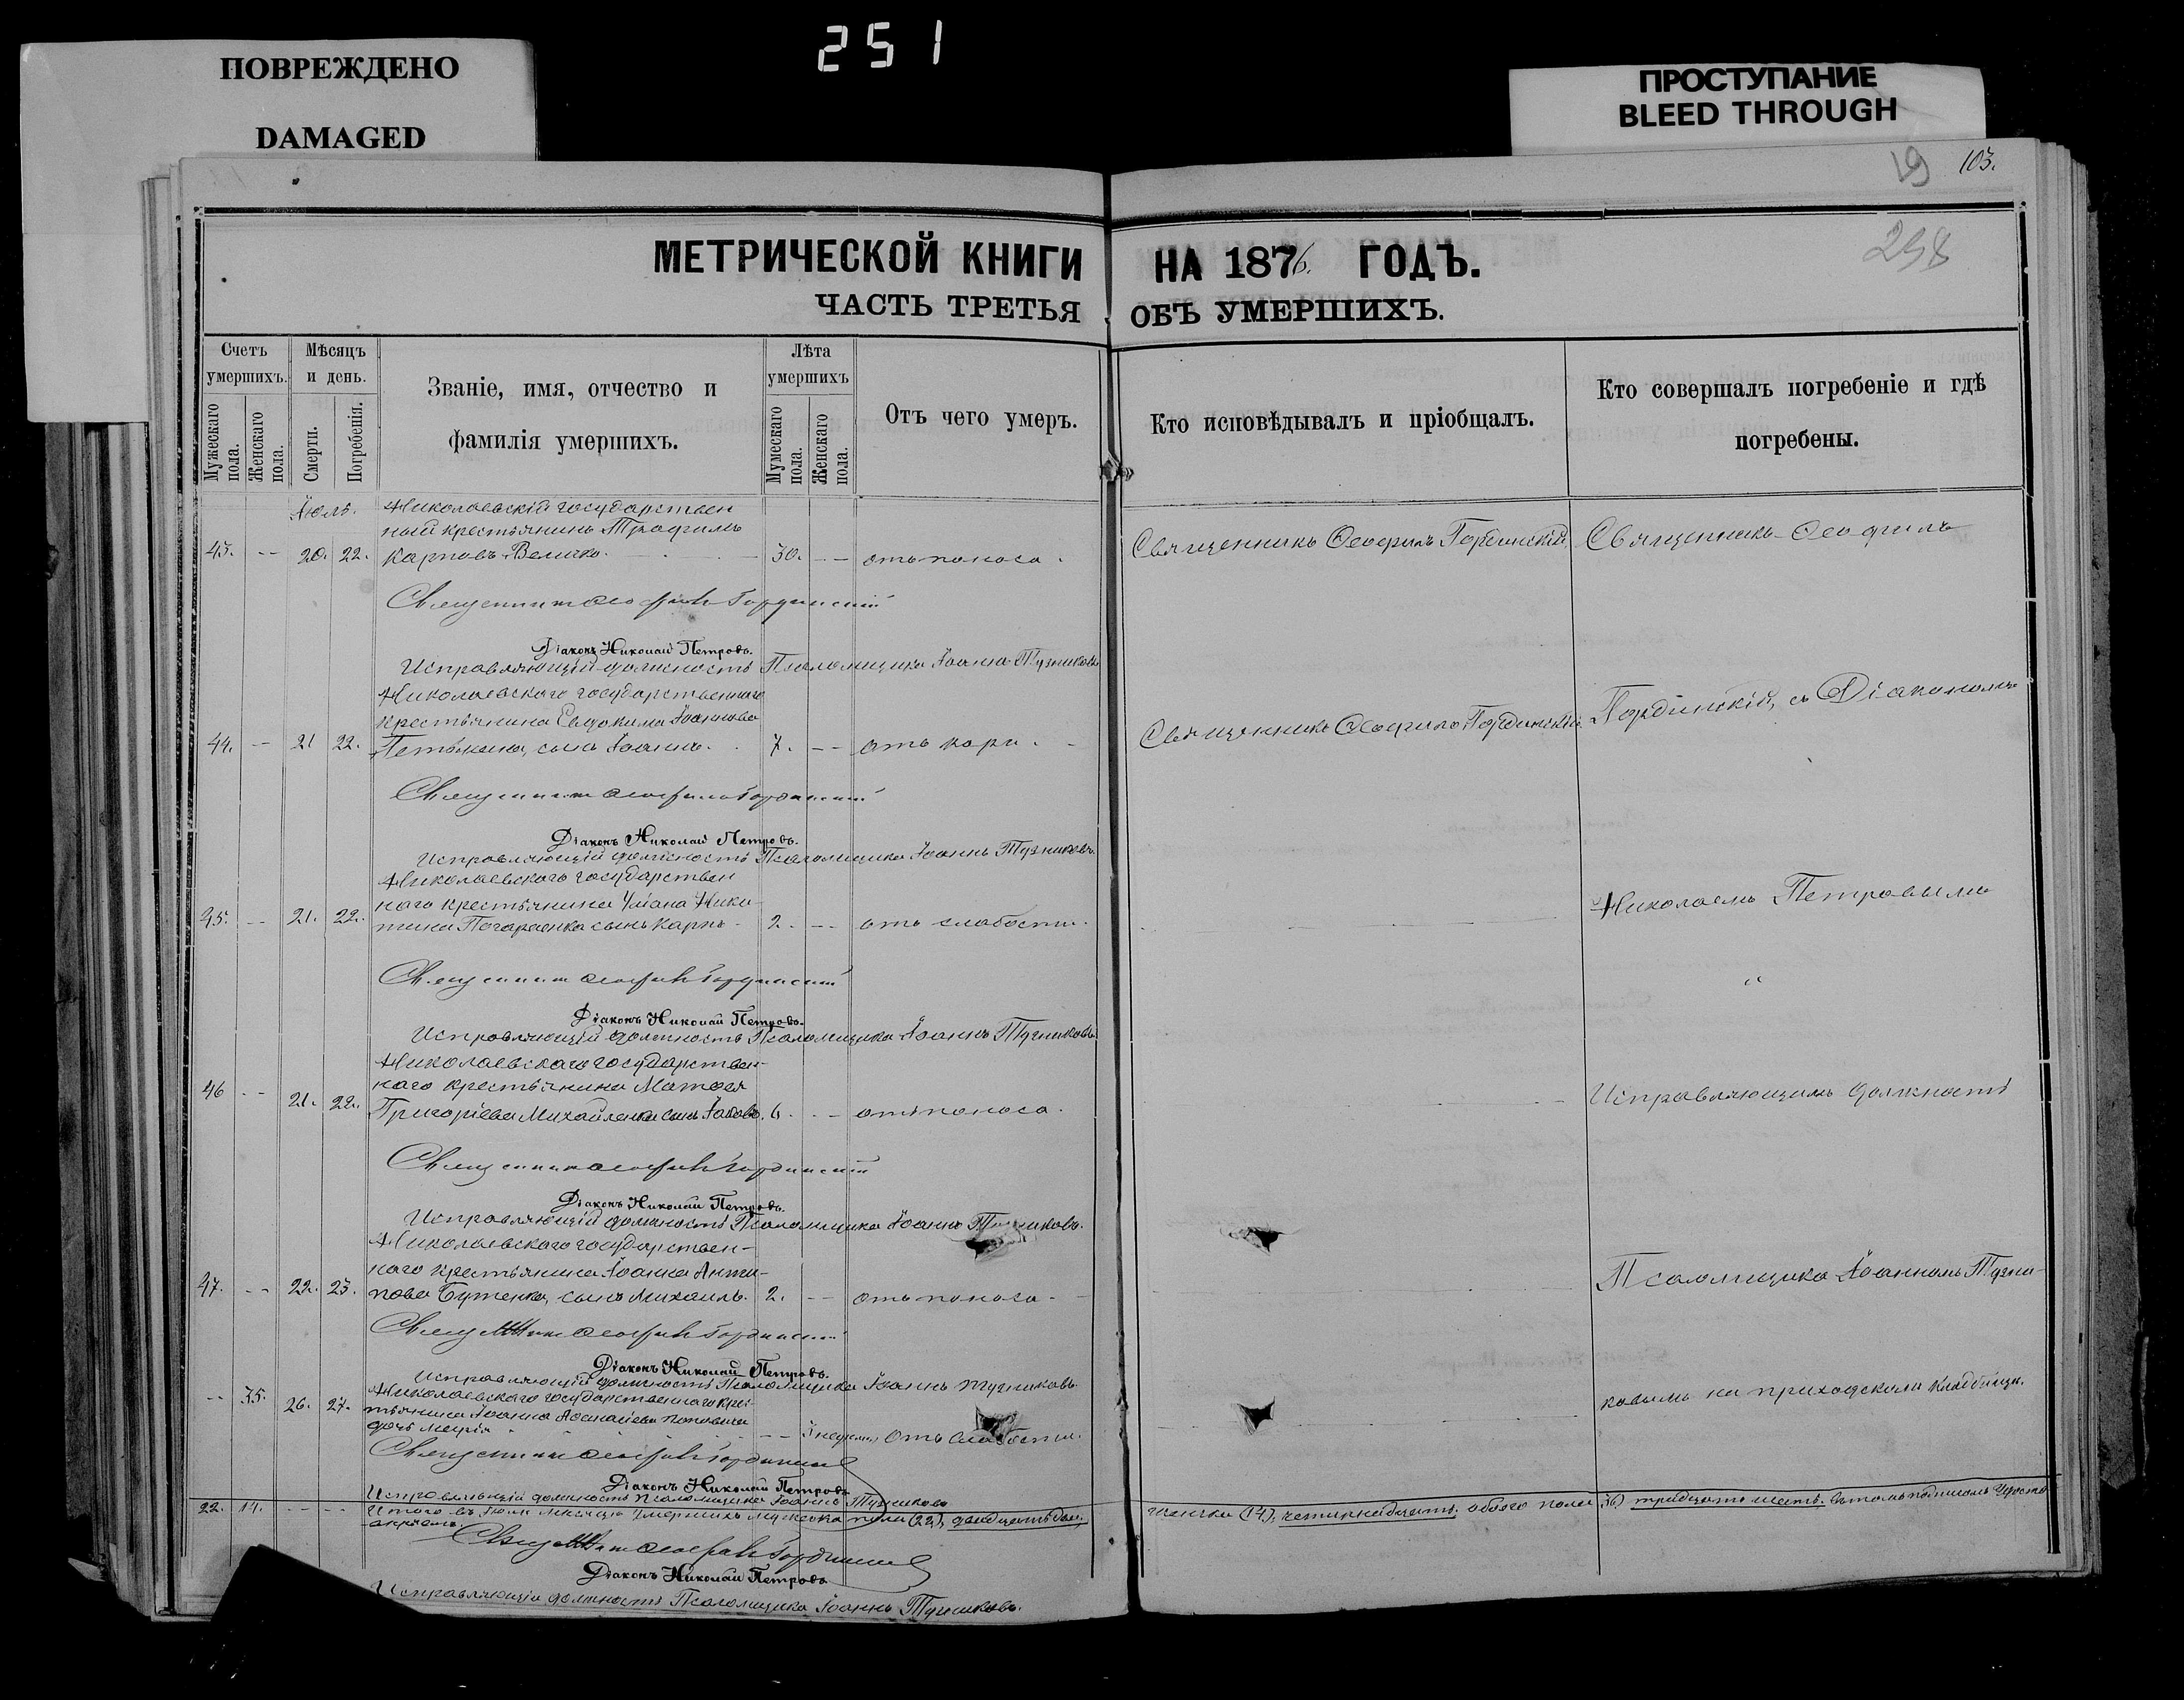 ПОВРЕЖДЕНО
DAMAGED
251
ПРОСТУПАНИЕ
BLEED THROUGH
19 103.
298
МЕТРИЧЕСКОЙ КНИГИ НА 1876. ГОДЪ.
ЧАСТЬ ТРЕТЬЯ ОБЪ УМЕРШИХЪ.
Счетъ умершихъ.
Мужескаго пола.
Женскаго пола.
Мѣсяцъ и день.
Смерти.
Погребенія.
Званіе, имя, отчество и
фамилія умершихъ.
Лѣта умершихъ
Мужескаго пола.
Женскаго пола.
Отъ чего умеръ.
Кто исповѣдывалъ и пріобщалъ.
Кто совершалъ погребеніе и гдѣ
погребены.
Іюль. Николаевскій государствен
ный крестьянинъ Трофимъ
43. -- 20. 22. Карповъ Величко. 30. -- отъ поноса.
Священникъ Ѳеофилъ Гординскій
Священникъ Ѳеофилъ
Священникъ Ѳеофилъ Гординскій
Діаконъ Николай Петровъ.
Исправляющій должность Псаломщика Іоаннъ Тузниковъ
Николаевскаго государственнаго
крестьянина Евдокима Іоаннова
44. -- 21 22. сынъ Іоаннъ. 7. -- отъ кори.
Священникъ Ѳеофилъ Гординскій
Гординскій, съ Діакономъ
Священникъ Ѳеофилъ Гординскій
Діаконъ Николай Петровъ.
Исправляющій должность Псаломщика Іоаннъ Тузниковъ
Николаевскаго государствен
наго крестьянина Ники
45. -- 21. 22. тина сынъ Карпъ. 2. -- отъ слабости.
Николаемъ Петровымъ
Священникъ Ѳеофилъ Гординскій
Діаконъ Николай Петровъ.
Исправляющій должность Псаломщика Іоаннъ Тузниковъ
Николаевскаго государствен-
наго крестьянина Матѳея
46 -- 21. 22. Григоріева Михайленка сынъ Іаковъ. 6. -- отъ поноса.
Исправляющимъ должность
Священникъ Ѳеофилъ Гординскій
Діаконъ Николай Петровъ.
Исправляющій должность Псаломщика Іоаннъ
Николаевскаго государствен-
наго крестьянина Іоанна Анти-
47. -- 22. 23. пова Бутенка, сынъ Михаилъ. 2. -- отъ поноса.
Псаломщика Іоанномъ Тузни-
Священникъ Ѳеофилъ Гординскій
Діаконъ Николай Петровъ.
Исправляющій должность Псаломщика Іоаннъ Тузниковъ
Николаевскаго государственнаго крес-
-- 35. 26. 27. тьянина Іоанна Аѳанасіева
дочь Марія -- отъ слабости.
ковымъ на приходскомъ кладбищѣ.
Священникъ Ѳеофилъ Гординскій
Діаконъ Николай Петровъ
Исправляющій должность Псаломщика Іоаннъ Тузниковъ
22. 14. -- -- Итого въ Іюлѣ мѣсяцѣ умершихъ мужеска пола (22), двадцать два,
женска (14), четырнадцать, обоего пола (36) тридцать шесть. въ томъ подписомъ
Священникъ Ѳеофилъ Гординскій
Діаконъ Николай Петровъ
Исправляющій должность Псаломщика Іоаннъ Тузниковъ.